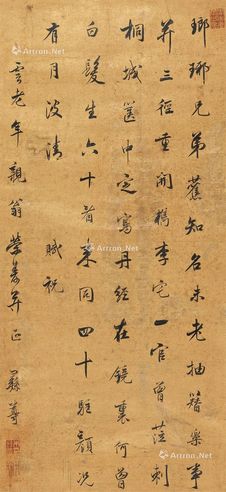 瑯琊兄弟舊知名未老抽簪樂事
并三徑重開穠李宅一官曾蒞刺
桐城篋中定寫丹經在鏡裏何曾
白髮生六十看來同四十駐顏况
有月波清 賦祝
雲老年親翁榮壽并正
Artron.Net
Artron.Net
Artron.Net
Artron.Net